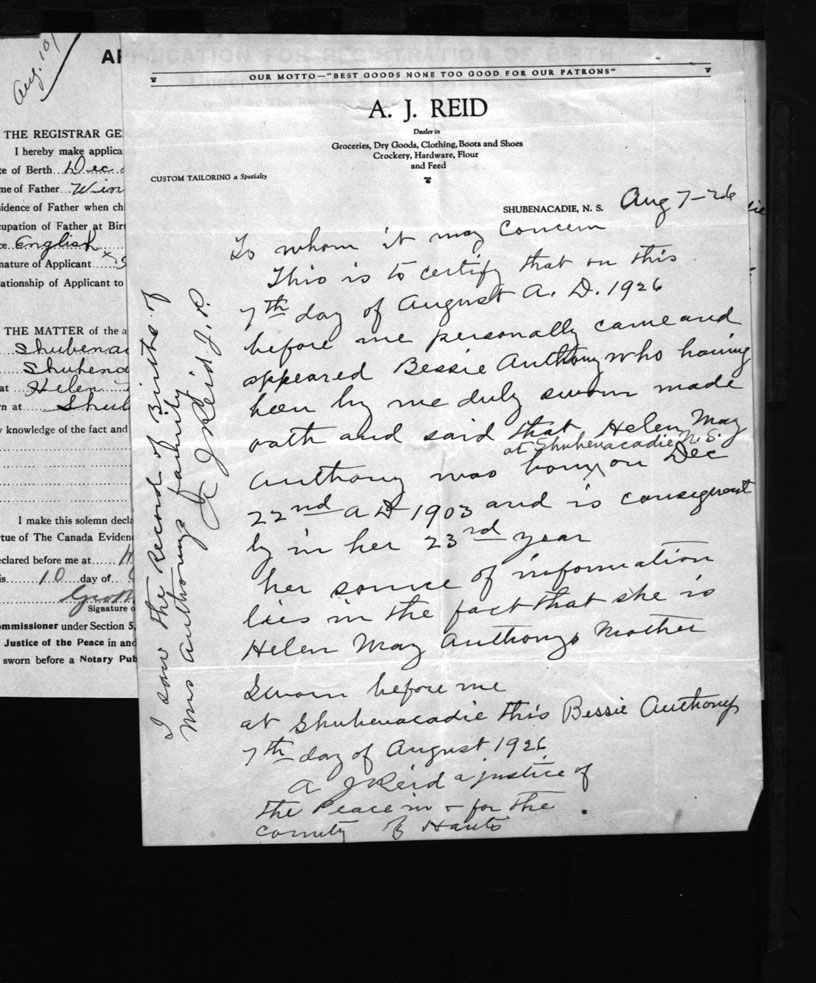 Aug. 10/
AP
THE REGISTRAR GE
I hereby make applica
te of Berth Dec
me of Father
sidence of Father when ch
cupation of Father at Birt
ce English
nature of Applicant x
ationship of Applicant to
THE MATTER of the a
Shubenac
Shubena
at Helen
rn at Shub
y knowledge of the fact and
I make this solemn decla
rtue of The Canada Eviden
eclared before me at
is 10 day of
Signature o
ommissioner under Section 5,
Justice of the Peace in and
sworn before a Notary Pub
OUR MOTTO—"BEST GOODS NONE TOO GOOD FOR OUR PATRONS"
A. J. REID
Dealer in
Groceries, Dry Goods, Clothing, Boots and Shoes
Crockery, Hardware, Flour
and Feed
CUSTOM TAILORING a Specialty
SHUBENACADIE, N. S. Aug 7-26
To whom it may Concern
This is to certify that on this
7th day of August A. D. 1926
before me personally came and
appeared Bessie Anthony who having
been by me duly sworn made
oath and said that Helen May
at Shubenacadie N.S.
Anthony was born on Dec
22nd A D 1903 and is consequent
ly in her 23rd year
her source of information
lies in the fact that she is
Helen May Anthonys Mother
Sworn before me
at Shubenacadie this Bessie Anthony
7th day of August 1926
A J Reid a justice of
the Peace in + for the
county of Hants
I saw the Record of Births of
Mrs Anthonys family
A J Reid J. P.